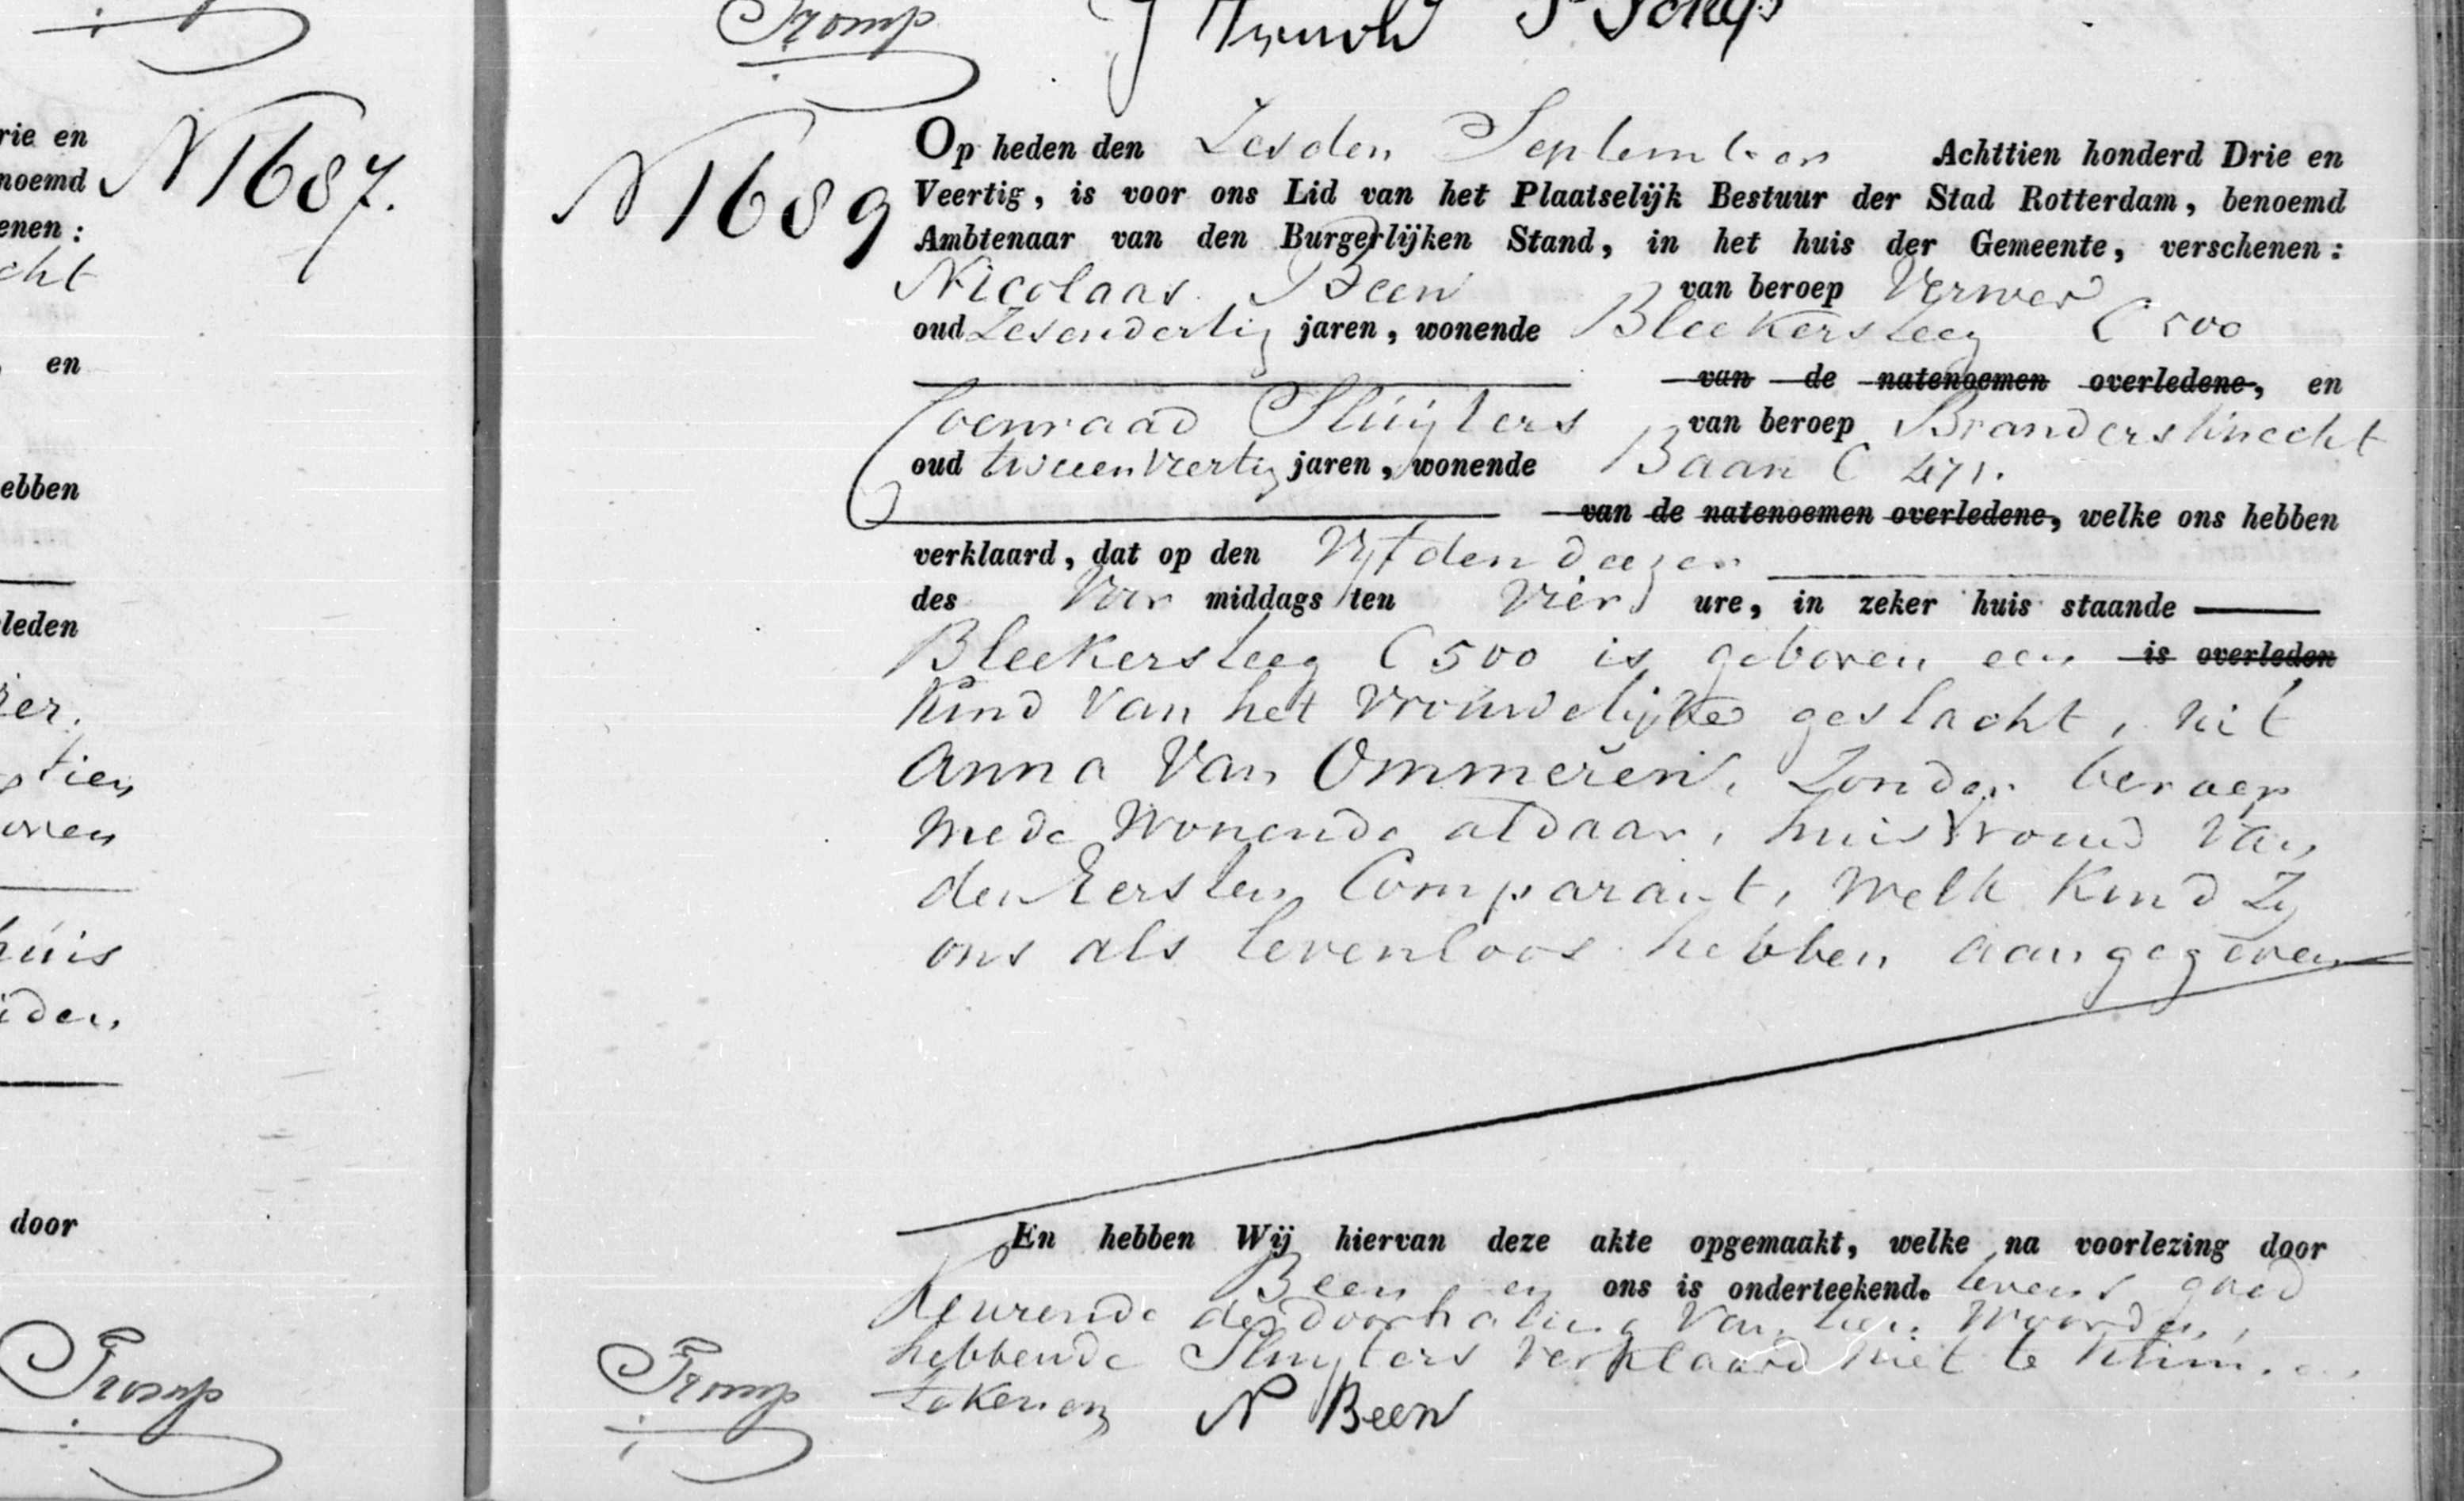 rie en
noemd
enen :
cht
en
ebben
leden
ier.
tien
oren
huis
iden,
door
Tromp
N 1687.
Tromp
N 1689
Op heden den Zesden September Achttien honderd Drie en
Veertig, is voor ons Lid van het Plaatselijk Bestuur der Stad Rotterdam, benoemd
Ambtenaar van den Burgerlijken Stand, in het huis der Gemeente, verschenen :
Nicolaas Been van beroep Verwer
oud Zesendertig jaren, wonende Bleekersteeg C 500
van de natenoemen overledene, en
Coenraad Sluijters van beroep Brandersknecht
oud tweeenveertig jaren, wonende Baan C 471.
van de natenoemen overledene, welke ons hebben
verklaard, dat op den Vyfden deezer
des Voor middags ten Vier ure, in zeker huis staande
Bleekersteeg C 500 is geboren een is overleden
Kind van het Vrouwelijke geslacht, uit
Anna Van Ommeren, Zonder beroep
mede Wonende aldaar, huisvrouw Van
den Eersten Comparant, Welk Kind Zy
ons als levenloos hebben aangegeven
En hebben Wij hiervan deze akte opgemaakt, welke na voorlezing door
Been en ons is onderteekend. tevens goed
Keurende de doorhaling Van tien Woorden,
hebbende Sluyters Verklaard niet te Kunnen
tekenen
N Been
Tromp